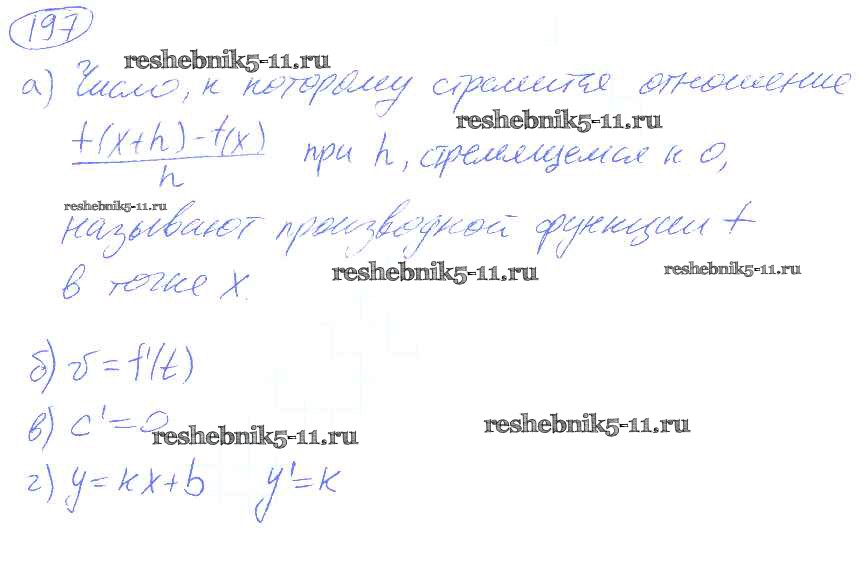 197
reshebnik5-11.ru
а) Число, к которому стремится отношение
reshebnik5-11.ru
f(x+h)-f(x)
h
при h, стремящемся к 0,
reshebnik5-11.ru
называют производной функции f
reshebnik5-11.ru
reshebnik5-11.ru
в точке x.
б) v = f'(t)
в) c' = 0
reshebnik5-11.ru
reshebnik5-11.ru
г) y = kx + b y' = k